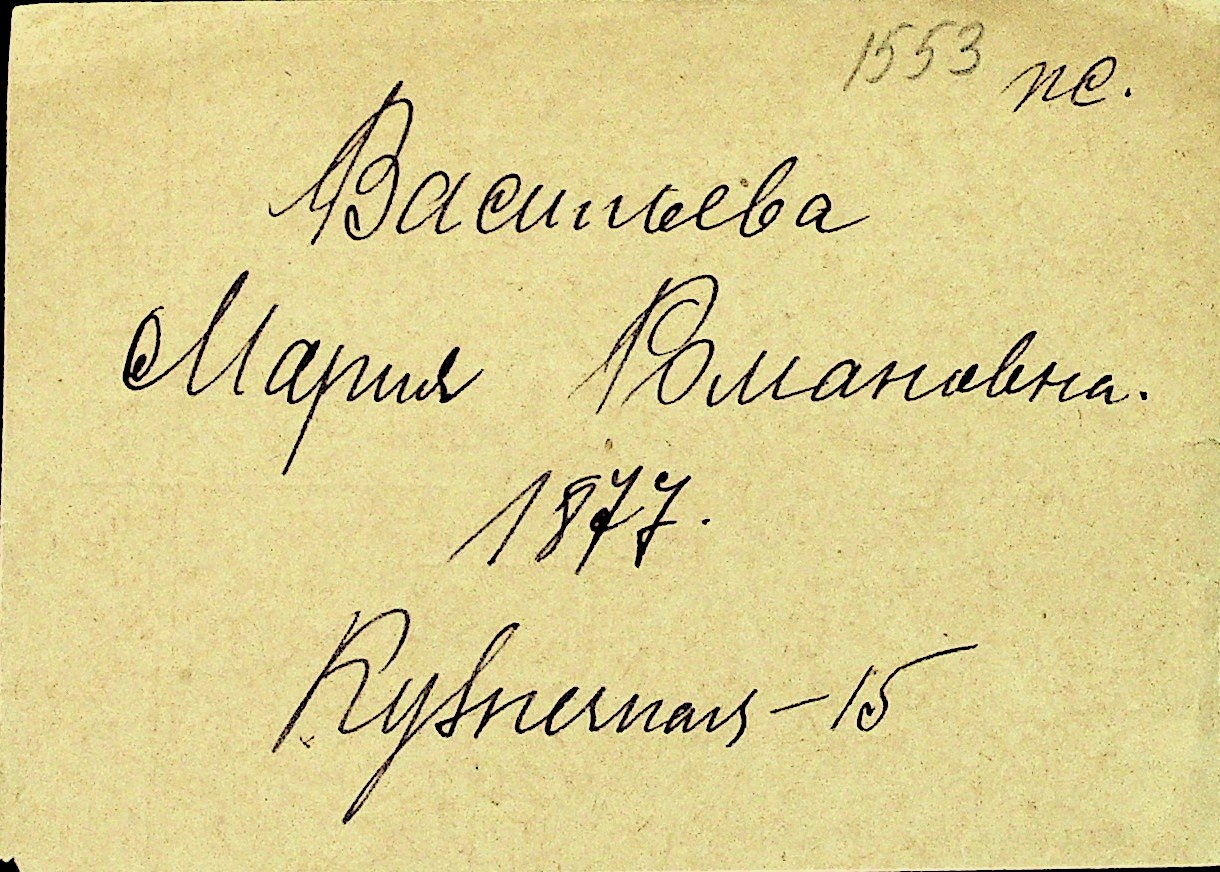 1553 пс.
Васильева
Мария Романовна.
1877.
Кузнечная – 15